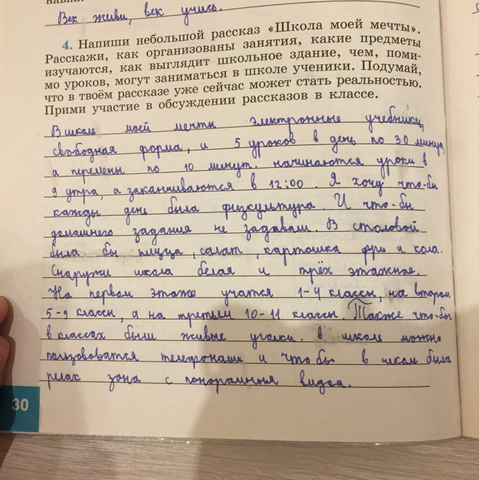 Век живи, век учись.
4. Напиши небольшой рассказ «Школа моей мечты».
Расскажи, как организованы занятия, какие предметы
изучаются, как выглядит школьное здание, чем, поми-
мо уроков, могут заниматься в школе ученики. Подумай,
что в твоём рассказе уже сейчас может стать реальностью.
Прими участие в обсуждении рассказов в классе.
В школе моей мечты электронные учебники,
свободная форма, и 5 уроков в день по 30 минут
а перемены по 10 минут. начинаются уроки в
9 утра, а заканчиваются в 12:00. Я хочу что-бы
кажды день была физкультура И что-бы
домашнего задания не задавали. В столовой
была бы пицца, салат, картошка фри и кола.
Снаружи школа белая и трёх этажная.
На первом этаже учатся 1-4 классы, на втором
5-9 классы, а на третьем 10-11 классы. Также что-бы
в классах были живые уголки. в школе можно
пользоватся телефонами и что бы в школе была
релах зона с понорамным видом.
30